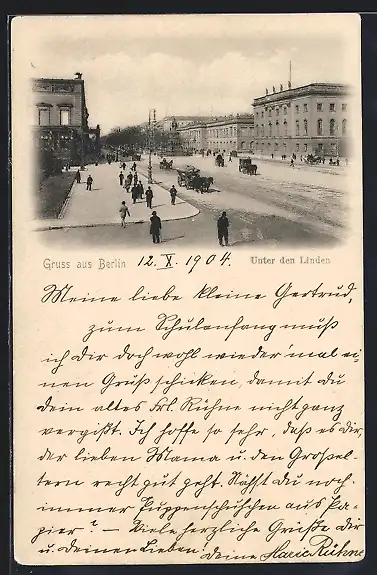 Gruss aus Berlin 12. X. 1904. Unter den Linden
Meine liebe kleine Gertrud,
zum Schulanfang muß
ich Dir doch wohl wieder 'mal ei-
nen Gruß schicken, damit du
dein altes Frl. Rühne nicht ganz
vergißt. Ich hoffe so sehr, daß es dir,
der lieben Mama u. den Großel-
tern recht gut geht. Nähst du noch
immer Puppenschuhchen aus Pa-
pier? – Viele herzliche Grüße dir
u. deinen Lieben. Deine Marie Rühne